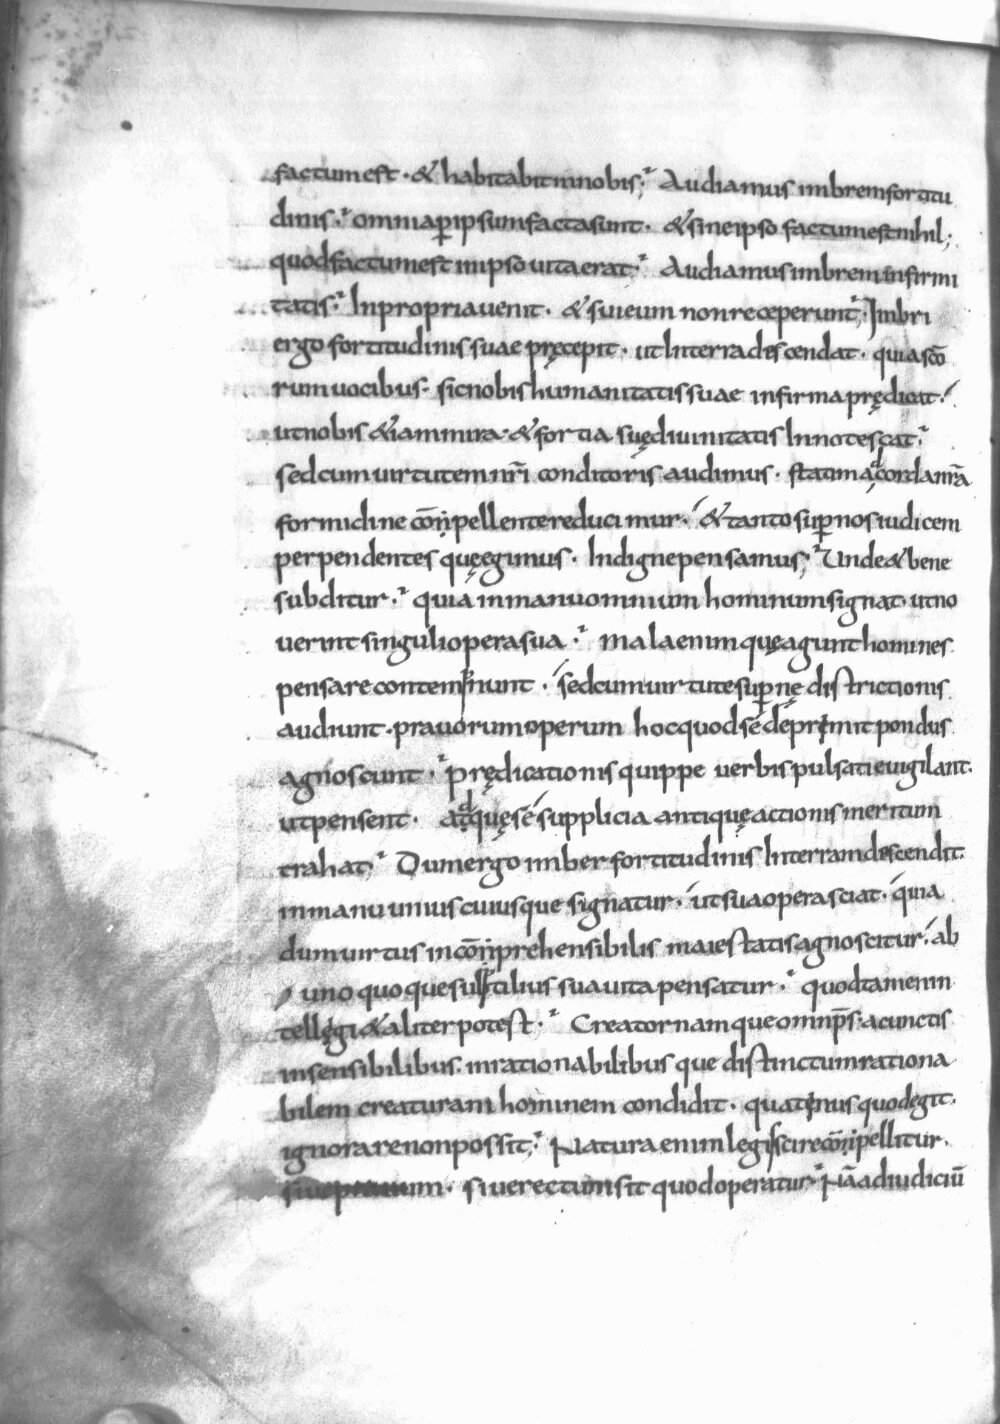 factum est · & habitabit in nobis; Audiamus imbrem fortitu
dinis · omnia p̲ ipsum facta sunt · & sine ipso factum est nihil;
quod factum est in ipso uita erat; Audiamus imbrem infirmi
tatis · In propria uenit · & sui eum non receperunt; Imbri
ergo fortitudinis suae pręcepit · ut In terra descendat · quia scō
rum uocibus · sic nobis humanitatis suae infirma prędicat ·
ut nobis &iam mira · & fortia suę diuinitatis Innotescat;
sed cum uirtutem nr̄i conditoris audimus · statim ad corda nr̄a
formidine cōnpellente reducimur · & tanto sup̲ nos iudicem
perpendentes quę egimus · Indigne pensamus; Unde & bene
subditur · quia in manu omnium hominum signat · ut no
uerint singuli opera sua · mala enim quę agunt homines
pensare contemnunt · sed cum uirtute sup̲nę districtionis
audiunt · prauorum operum hoc quod sé déprimit pondus
agnoscunt · prędicationis quippe uerbis pulsati euigilant ·
ut pensent · ad quę sé supplicia antiquę actionis meritum
trahat; Dum ergo imber fortitudinis In terram descendit ·
in manu uniuscuiusque signatur · ut sua opera sciat · quia
dum uirtus incōnprehensibilis maiestatis agnoscitur · ab
uno quoque subtilius sua uita pensatur · quod tamen in
tellegi & aliter potest · Creator namque omnip̄s · a cunctis
insensibilibus · inrationabilibus que distinctum rationa
bilem creaturam hominem condidit · quatinus quod egit ·
ignorare non possit; Natura enim legi scire cōnpellitur ·
siue prauum · siue rectum sit quod operatur · Nā ad iudiciū